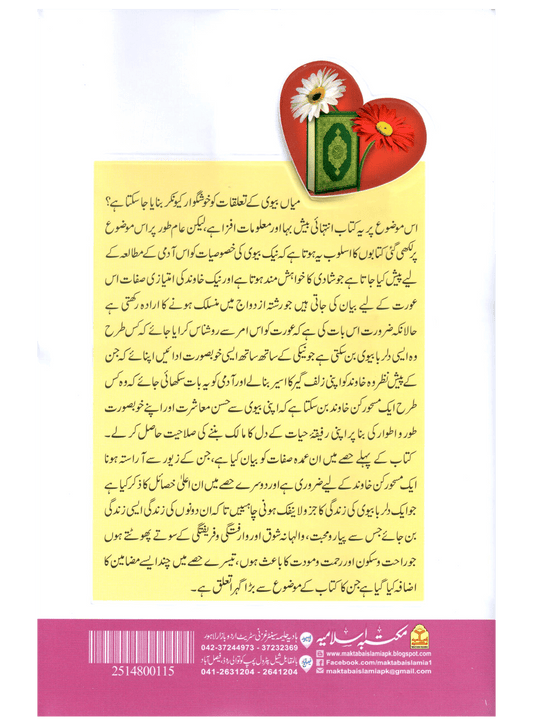 میاں بیوی کے تعلقات کو خوشگوار کیونکر بنایا جا سکتا ہے؟
اس موضوع پر یہ کتاب انتہائی بیش بہا اور معلومات افزا ہے، لیکن عام طور پر اس موضوع
پر لکھی گئی کتابوں کا اسلوب یہ ہوتا ہے کہ نیک بیوی کی خصوصیات کو اس آدمی کے مطالعہ کے
لیے پیش کیا جاتا ہے جو شادی کا خواہش مند ہوتا ہے اور نیک خاوند کی امتیازی صفات اس
عورت کے لیے بیان کی جاتی ہیں جو رشتہ ازدواج میں منسلک ہونے کا ارادہ رکھتی ہے
حالانکہ ضرورت اس بات کی ہے کہ عورت کو اس امر سے روشناس کرایا جائے کہ کس طرح
وہ ایسی دلربا بیوی بن سکتی ہے جو نیکی کے ساتھ ساتھ ایسی خوبصورت ادائیں اپنائے کہ جن
کے پیش نظر وہ خاوند کو اپنی زلف گیر کا اسیر بنا لے اور آدمی کو یہ بات سکھائی جائے کہ وہ کس
طرح ایک مسحور کن خاوند بن سکتا ہے کہ اپنی بیوی سے حسن معاشرت اور اپنے خوبصورت
طور و اطوار کی بنا پر اپنی رفیقۂ حیات کے دل کا مالک بننے کی صلاحیت حاصل کر لے۔
کتاب کے پہلے حصے میں ان عمدہ صفات کو بیان کیا ہے، جن کے زیور سے آراستہ ہونا
ایک مسحور کن خاوند کے لیے ضروری ہے اور دوسرے حصے میں ان اعلیٰ خصائل کا ذکر کیا ہے
جو ایک دلربا بیوی کی زندگی کا جزو لاینفک ہونی چاہییں تاکہ ان دونوں کی زندگی ایسی زندگی
بن جائے جس سے پیار و محبت، والہانہ شوق اور وارفتگی و فریفتگی کے سوتے پھوٹتے ہوں
جو راحت و سکون اور رحمت و مودت کا باعث ہوں، تیسرے حصے میں چند ایسے مضامین کا
اضافہ کیا گیا ہے جن کا کتاب کے موضوع سے بڑا گہرا تعلق ہے۔
مکتبہ اسلامیہ
www.maktabaislamiapk.blogspot.com
Facebook.com/maktabaislamia1
maktabaislamiapk@gmail.com
لاہور ہادیہ حلیمہ سینٹر غزنی سٹریٹ اردو بازار لاہور
042-37244973 - 37232369
بالمقابل شیل پٹرول پمپ کوتوالی روڈ، فیصل آباد
041-2631204 - 2641204
2514800115